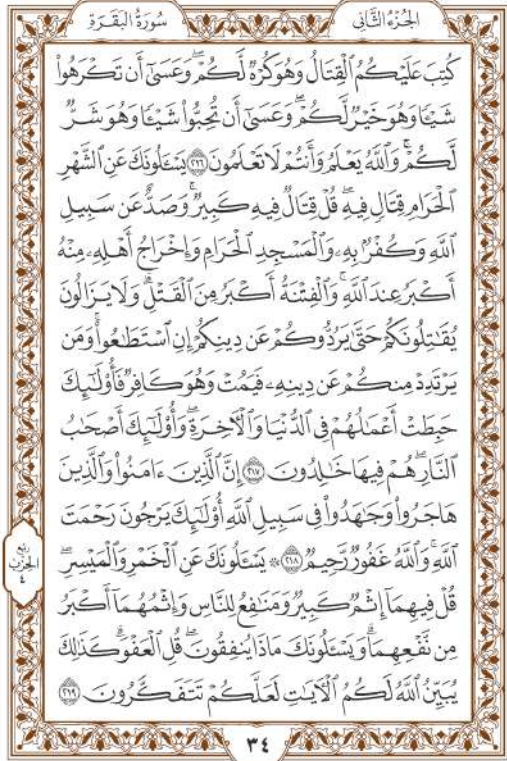 سُورَةُ الْبَقَرَةِ
الجُزْءُ الثَّانِي
كُتِبَ عَلَيْكُمُ ٱلْقِتَالُ وَهُوَ كُرْهٌ لَّكُمْ ۖ وَعَسَىٰٓ أَن تَكْرَهُوا۟
شَيْـًٔا وَهُوَ خَيْرٌ لَّكُمْ ۖ وَعَسَىٰٓ أَن تُحِبُّوا۟ شَيْـًٔا وَهُوَ شَرٌّ
لَّكُمْ ۗ وَٱللَّهُ يَعْلَمُ وَأَنتُمْ لَا تَعْلَمُونَ ٢١٦ يَسْـَٔلُونَكَ عَنِ ٱلشَّهْرِ
ٱلْحَرَامِ قِتَالٍ فِيهِ ۖ قُلْ قِتَالٌ فِيهِ كَبِيرٌ ۖ وَصَدٌّ عَن سَبِيلِ
ٱللَّهِ وَكُفْرٌۢ بِهِۦ وَٱلْمَسْجِدِ ٱلْحَرَامِ وَإِخْرَاجُ أَهْلِهِۦ مِنْهُ
أَكْبَرُ عِندَ ٱللَّهِ ۚ وَٱلْفِتْنَةُ أَكْبَرُ مِنَ ٱلْقَتْلِ ۗ وَلَا يَزَالُونَ
يُقَٰتِلُونَكُمْ حَتَّىٰ يَرُدُّوكُمْ عَن دِينِكُمْ إِنِ ٱسْتَطَٰعُوا۟ ۚ وَمَن
يَرْتَدِدْ مِنكُمْ عَن دِينِهِۦ فَيَمُتْ وَهُوَ كَافِرٌ فَأُو۟لَٰٓئِكَ
حَبِطَتْ أَعْمَٰلُهُمْ فِى ٱلدُّنْيَا وَٱلْءَاخِرَةِ ۖ وَأُو۟لَٰٓئِكَ أَصْحَٰبُ
ٱلنَّارِ ۖ هُمْ فِيهَا خَٰلِدُونَ ٢١٧ إِنَّ ٱلَّذِينَ ءَامَنُوا۟ وَٱلَّذِينَ
هَاجَرُوا۟ وَجَٰهَدُوا۟ فِى سَبِيلِ ٱللَّهِ أُو۟لَٰٓئِكَ يَرْجُونَ رَحْمَتَ
ٱللَّهِ ۚ وَٱللَّهُ غَفُورٌ رَّحِيمٌ ٢١٨ ۞ يَسْـَٔلُونَكَ عَنِ ٱلْخَمْرِ وَٱلْمَيْسِرِ ۖ
قُلْ فِيهِمَآ إِثْمٌ كَبِيرٌ وَمَنَٰفِعُ لِلنَّاسِ وَإِثْمُهُمَآ أَكْبَرُ
مِن نَّفْعِهِمَا ۗ وَيَسْـَٔلُونَكَ مَاذَا يُنفِقُونَ ۖ قُلِ ٱلْعَفْوَ ۗ كَذَٰلِكَ
يُبَيِّنُ ٱللَّهُ لَكُمُ ٱلْءَايَٰتِ لَعَلَّكُمْ تَتَفَكَّرُونَ ٢١٩
ربع
الحزب
٤
٣٤